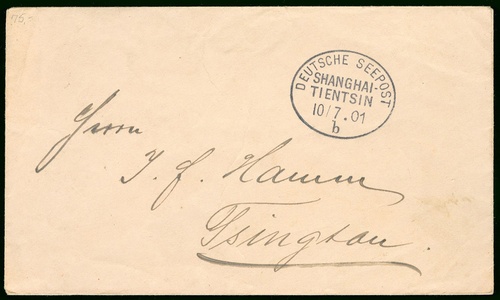 175,-
DEUTSCHE SEEPOST
SHANGHAI-
TIENTSIN
10/7.01
b
Herrn
J. f. Hamm
Tsingtau.